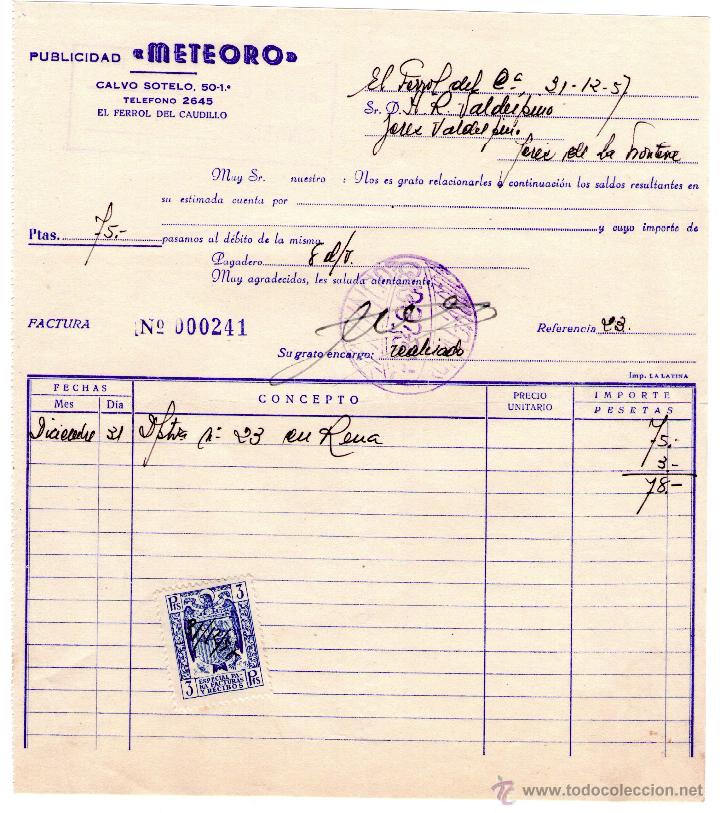 PUBLICIDAD «METEORO»
CALVO SOTELO, 50-1.º
TELEFONO 2645
EL FERROL DEL CAUDILLO
El Ferrol del Cª, 31-12-57
Sr. D. A. R. Valdespino
Jerez Valdespino
Jerez de La Frontera
Muy Sr. nuestro : Nos es grato relacionarles a continuación los saldos resultantes en
su estimada cuenta por
y cuyo importe de
Ptas. 75,- pasamos al débito de la misma.
Pagadero 8 d/v.
Muy agradecidos, les saluda atentamente,
FACTURA Nº 000241
Referencia 23.
Su grato encargo: realizado
Imp. LA LATINA
FECHAS
Mes Día
CONCEPTO
PRECIO UNITARIO
IMPORTE
PESETAS
Diciembre 31 nº 23 en Rena 75.-
3.-
78.-
Pts 3
31/12/57
ESPECIAL PA-
RA FACTURAS
Y RECIBOS
3 Pts
www.todocoleccion.net